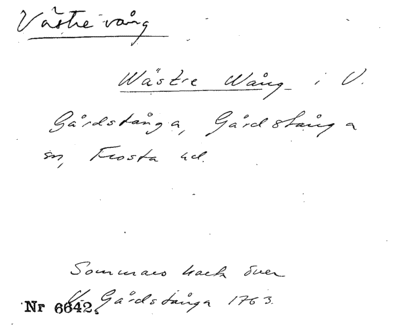 Västre vång
Wästre Wång i V.
Gårdstånga, Gårdstånga
sn, Frosta hd.
Sommars karta över
V. Gårdstånga 1763.
Nr 6642.